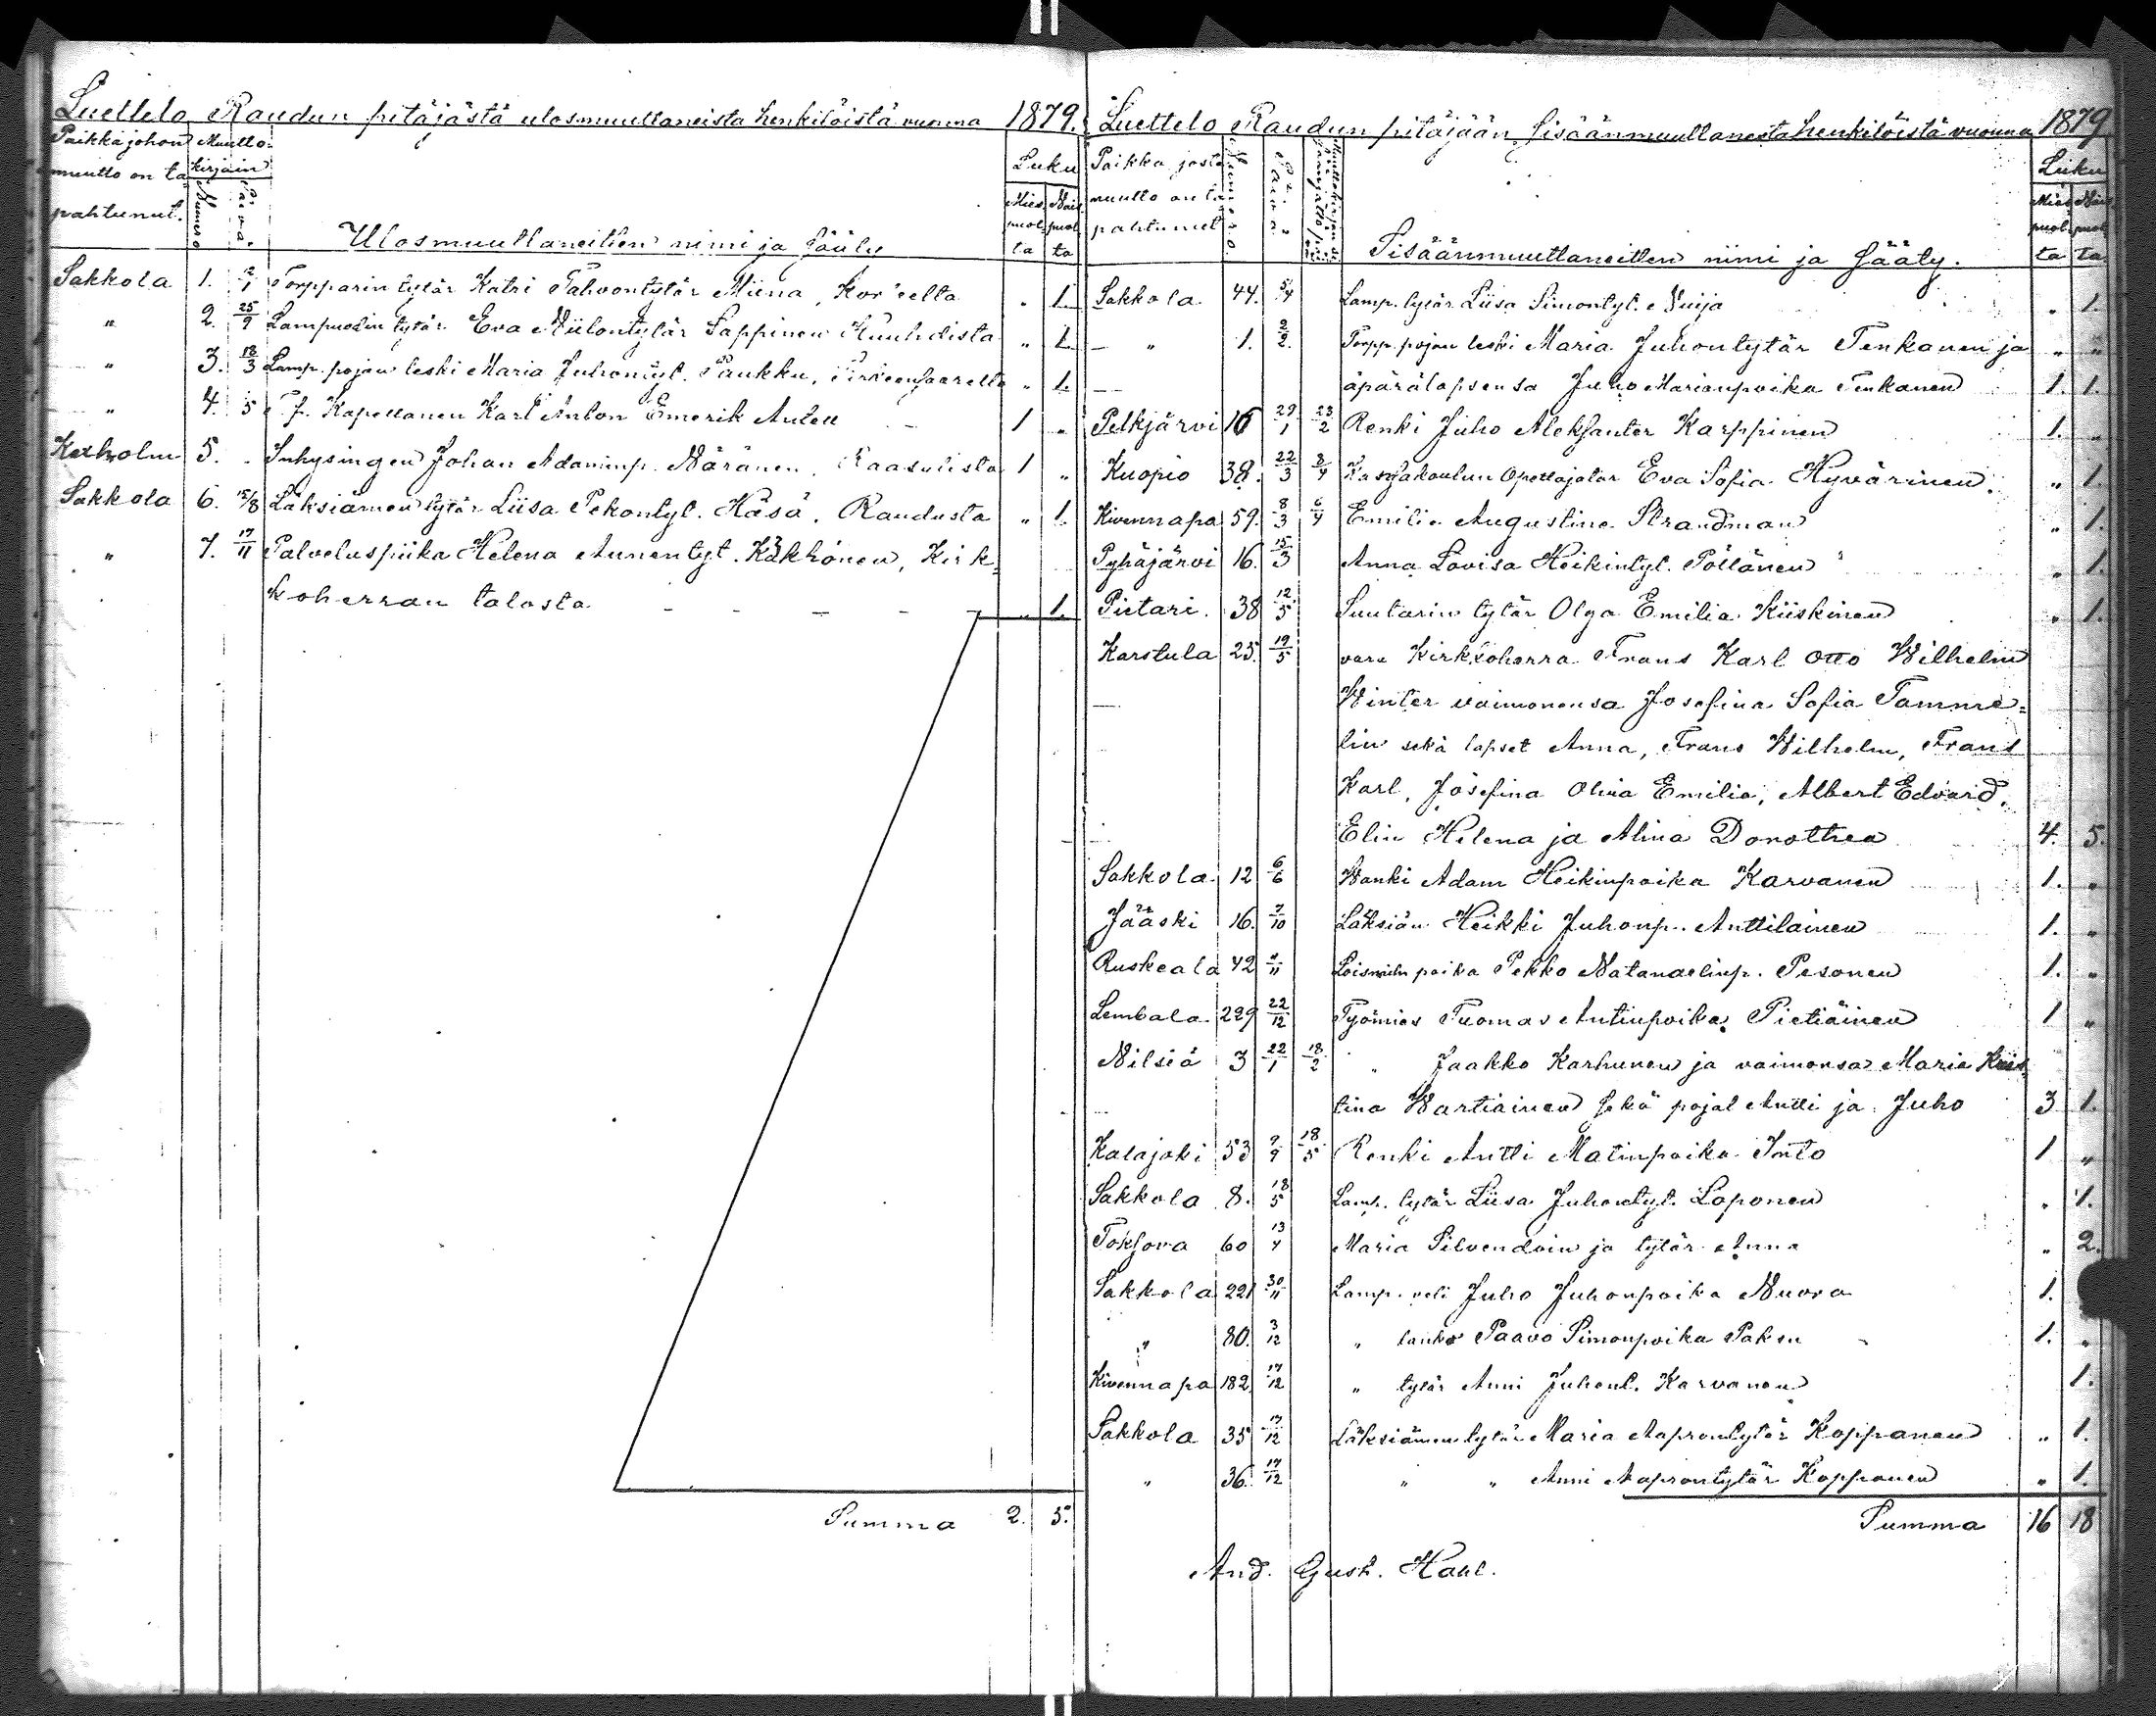 Luettelo Raudun pitäjästä ulosmuuttaneista henkilöistä vuonna 1879.
Paikka johon muutto on tapahtunut.
Muutto kirjain
Numero
Ulosmuuttaneitten nimi ja sääty
Luku
Mies puol ta
Nais puol ta
Sakkola 1. Torpparin tytär Katri Pahvontytär Miina, Kor'eelta " 1.
" 2. 25/9 Lampuodin tytär Eva Niilontytär Sappinen Kuuhdista " 1.
" 3. 18/3 Lamp. pojan leski Maria Juhontyt. Paukku, Pirkeensaarelta " 1.
" 4. 5 Kapellanen Karl Anton Emerik Antell 1 "
Kexholm 5. Inhysingen Johan Adaminp. Näränen, Raasulista 1 "
Sakkola 6. 15/8 Läksiämen tytär Liisa Pekontyt. Häsä, Raudusta " 1.
" 7. 17/11 Palveluspiika Helena Aunentyt. Käkhönen, Kirk=
koherran talosta " 1.
Summa 2. 5.
Luettelo Raudun pitäjään sisäänmuuttaneista henkilöistä vuonna 1879
Paikka josta muutto on tapahtunut
Sisäänmuuttaneitten nimi ja sääty.
Luku
Mies puol ta
Nais puol ta
Sakkola. 44. 5/4 Lamp. tytär Liisa Simontyt. Nuija " 1.
" 1. 2/2. Torpp. pojan leski Maria Juhontytär Tenkanen ja " "
äpärälapsensa Juho Marianpoika Tenkanen 1. 1.
Pelkjärvi 16 29/1 23/2 Renki Juho Aleksanter Karppinen 1. "
Kuopio 38. 22/3 8/4 Kansakoulun Opettajatar Eva Sofia Hyvärinen. " 1.
Kivennapa 59. 8/3 6/4 Emilia Augustina Strandman " 1.
Pyhäjärvi 16. 15/3 Anna Lovisa Heikintyt. Pöllänen " 1.
Pietari. 38 12/5 Suutarin tytär Olga Emilia Kiiskinen " 1.
Karstula 25. 19/5 vara Kirkkoherra Frans Karl Otto Wilhelm
Winter vaimonensa Josefina Sofia Tamme=
lin sekä lapset Anna, Frans Wilhelm, Frans
Karl, Josefina Olivia Emilia, Albert Edvard,
Elin Helena ja Alina Dorothea 4. 5.
Sakkola. 12 6/6 Wanki Adam Heikinpoika Karvanen 1. "
Jääski 16. 7/10 Läksiän Heikki Juhonp. Anttilainen 1. "
Ruskeala 42 Loismiehn poika Pekko Natanaelinp. Pesonen 1. "
Lembala. 229 22/12 Työmies Tuomas Antinpoika Pietiäinen 1 "
Nilsiä 3 22/1 18/2 " Jaakko Karhunen ja vaimonsa Maria Kris=
tina Wartiainen sekä pojat Antti ja Juho 3 1.
Kalajoki 53 9/9 18/5 Renki Antti Matinpoika Into 1 "
Sakkola 8. 18/5 Lamp. tytär Liisa Juhontyt. Loponen " 1.
Toksova 60 13/4 Maria Pilvendoin ja tytär Anna " 2.
Sakkola 221 30/11 Lamp. veli Juho Juhonpoika Nuora 1.
" 80. 3/12 " lanko Paavo Simonpoika Paksu 1. "
Kivennapa 182 17/12 " tytär Anni Juhont. Karvanen 1.
Sakkola 35 17/12 Läksiämen tytär Maria Aaprontytär Koppanen " 1.
" 36. 17/12 " " Anni Aaprontytär Koppanen " 1.
Summa 16 18
And. Gust. Hahl.